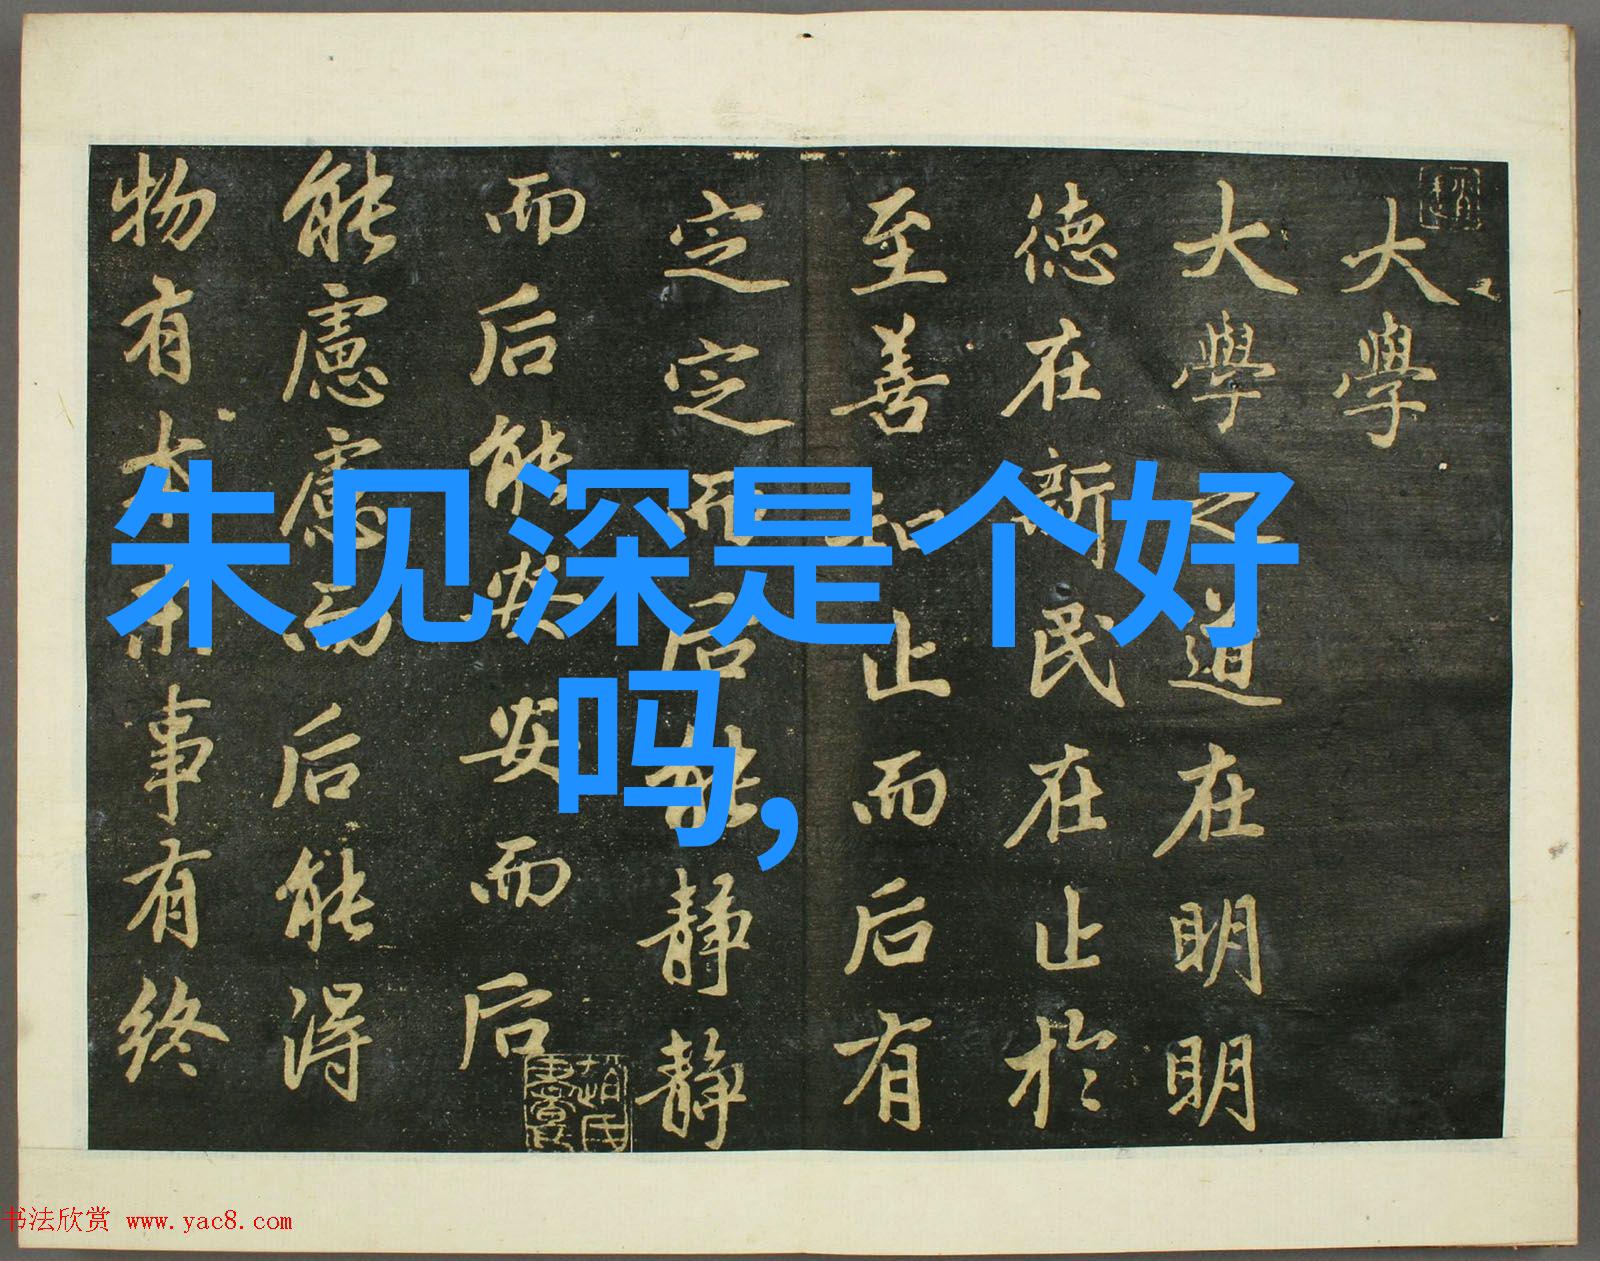 朱见深是个好
吗,
大學
大學之道在明明
德在新民在止於
至善知止而后有
定定而后能静静
而后能安安而后
能慮慮而后能得
物有本末事有終
书法欣赏 www.yac8.com